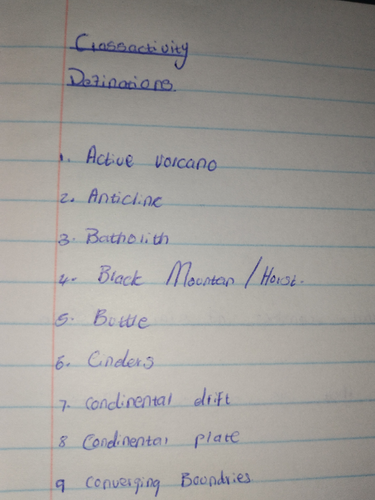 Classactivity
Definations
1. Active volcano
2. Anticline
3. Batholith
4. Black Mountan / Horst.
5. Buttle
6. Cinders
7. Condinental drift
8 Condinental plate
9 Converging Boundries